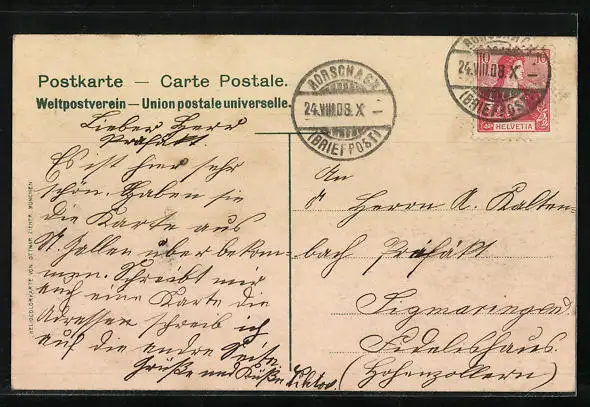 Postkarte — Carte Postale.
Weltpostverein — Union postale universelle.
RORSCHACH
24.VIII.08.X —
(BRIEFPOST)
RORSCHACH
24.VIII.08.X —
(BRIEFPOST)
10 10
HELVETIA
Lieber Herr
Präfäkt.
Es ist hier sehr
schön. Haben sie
die Karte aus
St. Gallen überbekom-
men. Schreibt mir
auch eine Karte die
Adressen schreib ich
auf die andre Seite
Grüße und Küße Viktor.
An
Herrn A. Kalten-
bach Präfäkt
Sigmaringen
Fidelishaus.
(Hohenzollern)
HELIOCOLORKARTE VON OTTMAR ZIEHER, MÜNCHEN